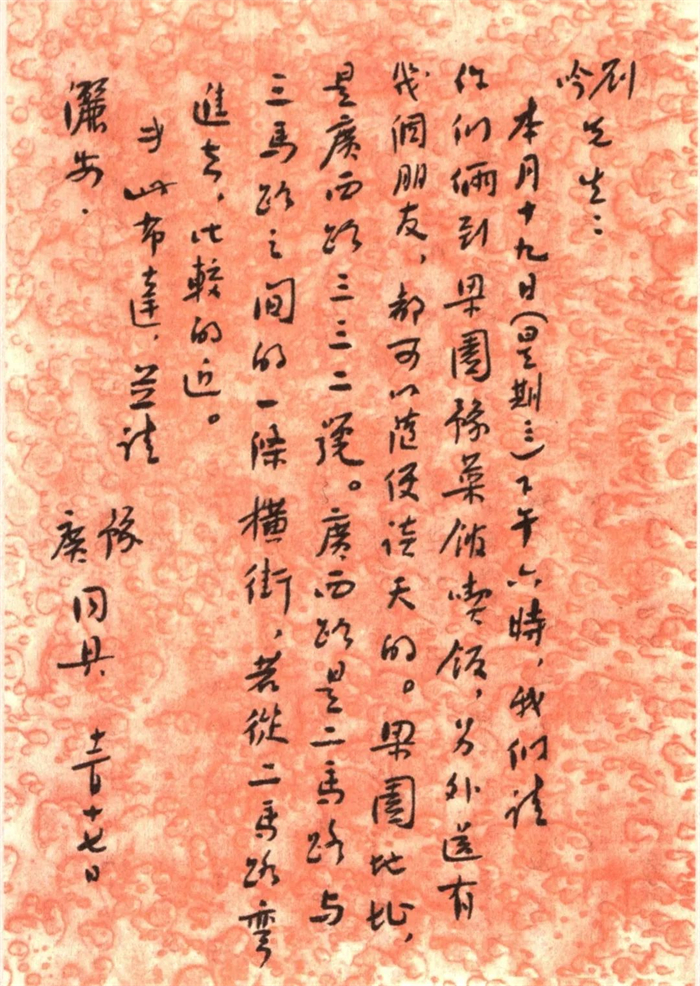 刘
吟先生：
本月十九日（星期三）下午六時，我们請
你们俩到梁園豫菜館喫飯，另外還有
幾個朋友，都可以隨便談天的。梁園地址，
是廣西路三三二號。廣西路是二馬路与
三馬路之间的一條橫街，若從二馬路彎
進去，比較的近。
专此布達，並請
儷安．
豫
廣同具 十二月十七日